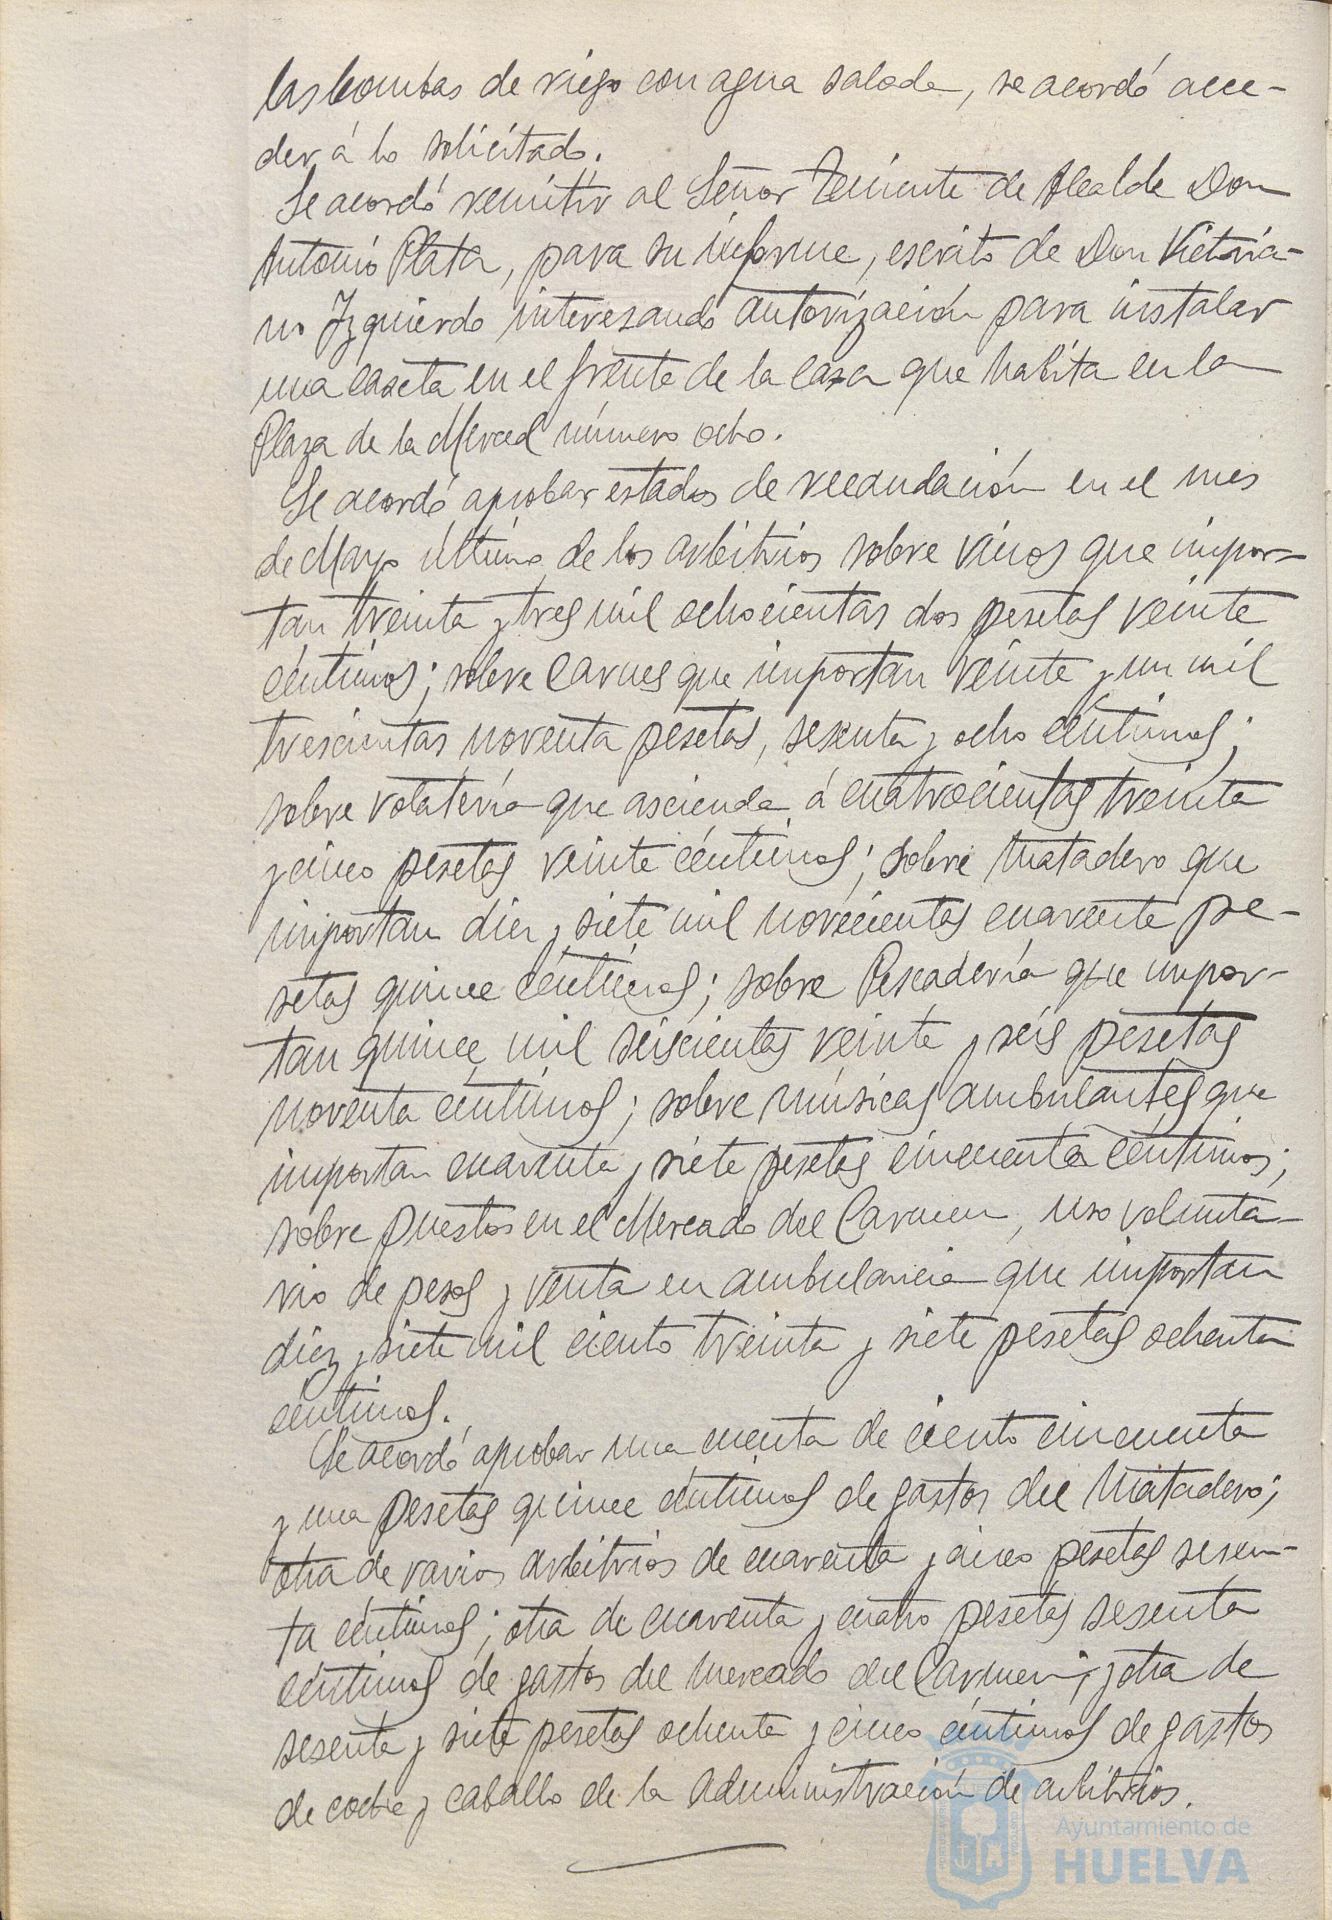 las bombas de riego con agua salada, se acordó acce-
der á lo solicitado.
Se acordó remitir al Señor Teniente de Alcalde Don
Antonio Plata, para su informe, escrito de Don Victoria-
no Izquierdo interesando autorización para instalar
una caseta en el frente de la casa que habita en la
Plaza de la Merced número ocho.
Se acordó aprobar estados de recaudación en el mes
de Mayo último de los arbitrios sobre vinos que impor-
tan treinta y tres mil ochocientas dos pesetas veinte
céntimos; sobre Carnes que importan veinte y un mil
trescientas noventa pesetas, sesenta y ocho céntimos;
sobre volatería que ascienda á cuatrocientas treinta
y cinco pesetas veinte céntimos; sobre Matadero que
importan diez y siete mil novecientas cuarenta pe-
setas quince céntimos; sobre Pescadería que impor-
tan quince mil seiscientas veinte y seis pesetas
noventa céntimos; sobre músicas ambulantes que
importan cuarenta y siete pesetas cincuenta céntimos;
sobre puestos en el Mercado del Carmen, uso volunta-
rio de pesas y venta en ambulancia que importan
diez y siete mil ciento treinta y siete pesetas ochenta
céntimos.
Se acordó aprobar una cuenta de ciento cincuenta
y una pesetas quince céntimos de gastos del Matadero;
otra de varios arbitrios de cuarenta y cinco pesetas sesen-
ta céntimos; otra de cuarenta y cuatro pesetas sesenta
céntimos de gastos del Mercado del Carmen; y otra de
sesenta y siete pesetas ochenta y cinco céntimos de gastos
de coche y caballo de la Administración de arbitrios.
Ayuntamiento de
HUELVA